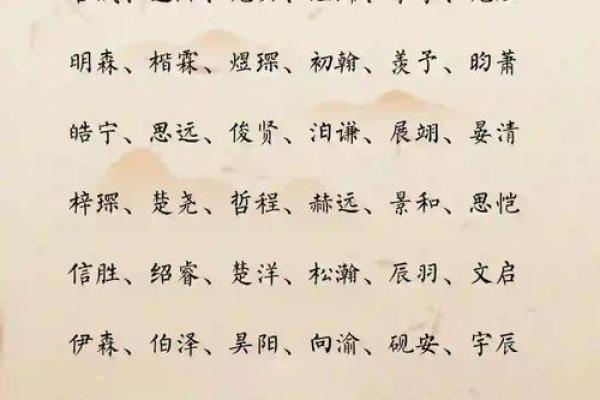 明森、楷霖、煜琛、初翰、羡予、昀萧
皓宁、思远、俊贤、泊谦、展翊、晏清
梓琛、楚尧、哲程、赫远、景和、思恺
信胜、绍睿、楚洋、松瀚、辰羽、文启
伊森、伯泽、昊阳、向渝、砚安、宇辰